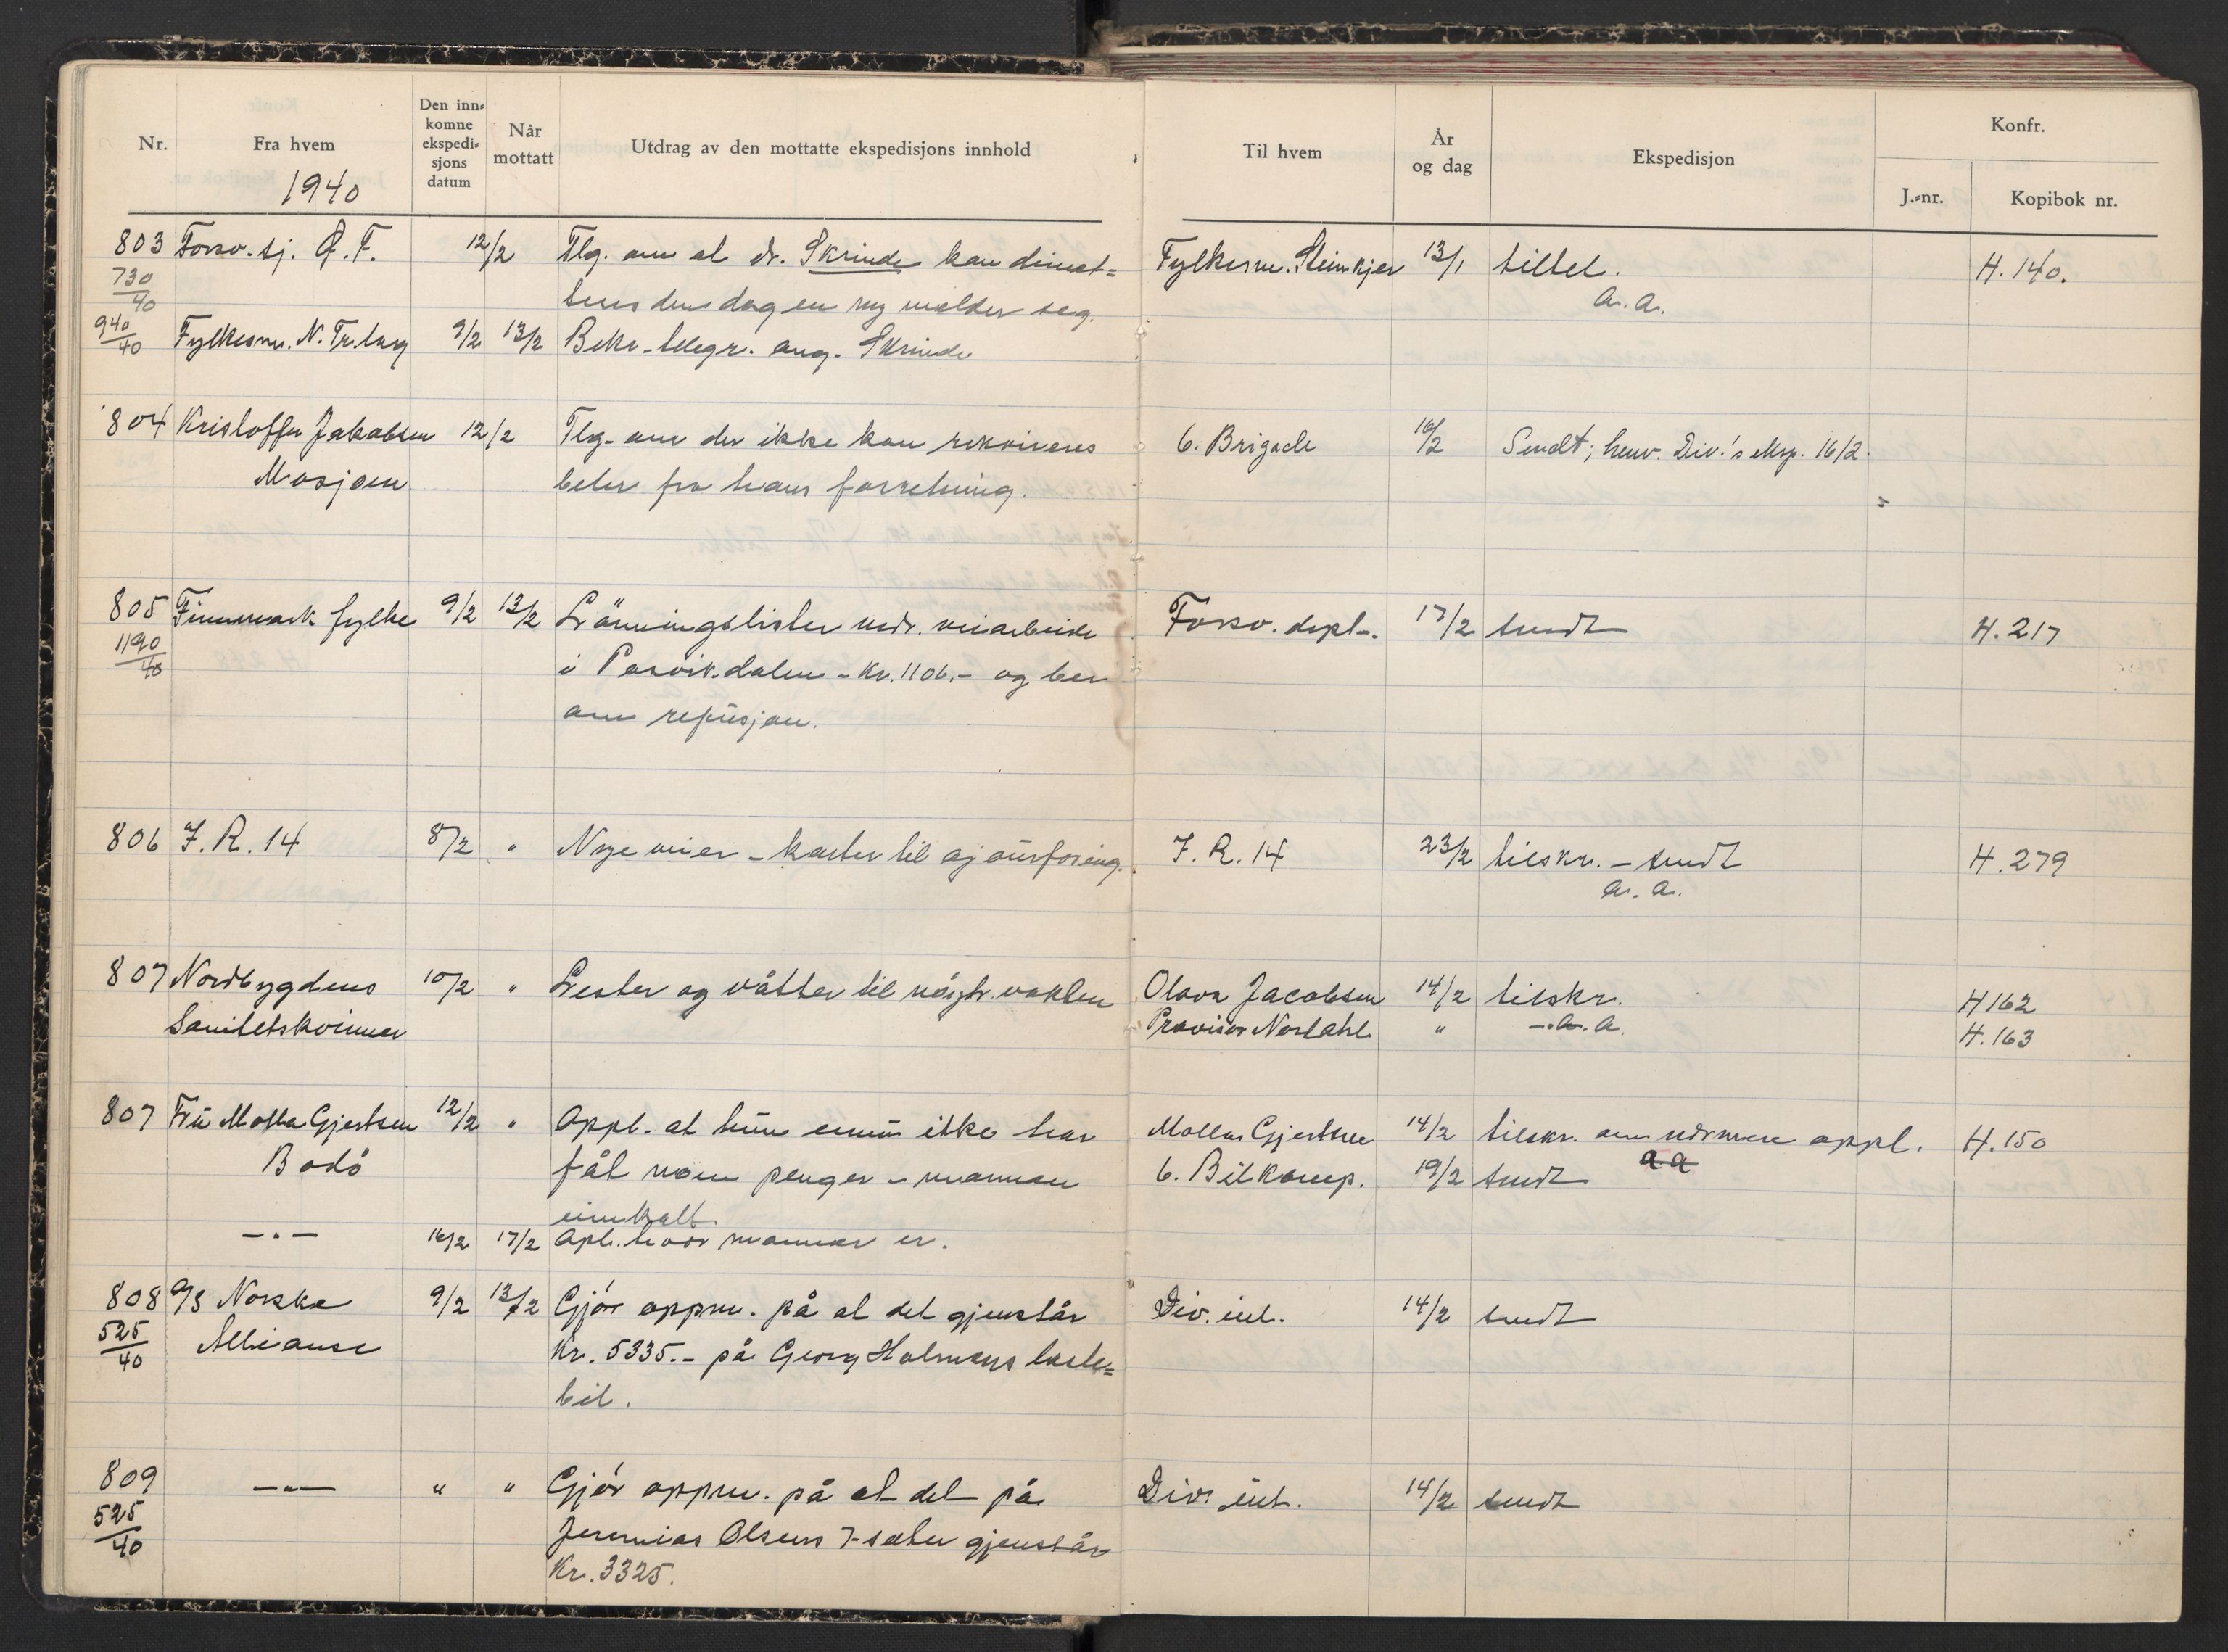 Nr. Fra hvem Den inn-komne ekspedi-sjons datum Når mottatt Utdrag av den mottatte ekspedisjons innhold Til hvem År og dag Ekspedisjon Konfr. J.-nr. Kopibok nr.
1940
803 Forsv. sj. 12/2 Tlg. om at dr. Skrinde kan dimit= Fylkesm. Steinkjer 13/1 tiltel. H. 140.
730/40 teres den dag en ny melder seg. a. a.
940/40 Fylkesm. N. Tr.lag 9/2 13/2 Bekr. telegr. ang. Skrinde
804 Kristoffer Jakobsen 12/2 Tlg. om der ikke kan rekvireres 6. Brigade 16/2 Sendt; henv. Div.'s eksp. 16/2.
Mosjøen biler fra hans forretning.
805 Finnmark fylke 9/2 13/2 Lønningslister vedr. veiarbeide Forsv. dept. 17/2 sendt H. 217
1190/40 i Pasvikdalen - Kr. 1106.- og ber
om refusjon.
806 I. R. 14 8/2 " Nye veier - karter til ajourføring. I. R. 14 23/2 tilskr. - sendt H. 279
a. a.
807 Nordbygdens 10/2 " Lester og våtter til nøytr. vakten Olava Jacobsen 14/2 tilskr. H 162
Sanitetskvinner Provisor Nordahl " - a. a. H. 163
807 Fru Molla Gjertsen 12/2 " Oppl. at hun ennu ikke har Molla Gjertsen 14/2 tilskr. om nærmere oppl. H. 150
Bodö fåt noen penger - mannen 6. Bilkomp. 19/2 sendt a a
innkalt.
— " — 16/2 17/2 Opl. hvor mannen er.
808 A/S Norske 9/2 13/2 Gjör oppm. på at det gjenstår Div. int. 14/2 sendt
525/40 Allianse Kr. 5335.- på Georg Holmens laste=
bil.
809 — " — " " Gjör oppm. på at det på Div. int. 14/2 sendt
525/40 Jeremias Olsens 7-seter gjenstår
Kr. 3325.